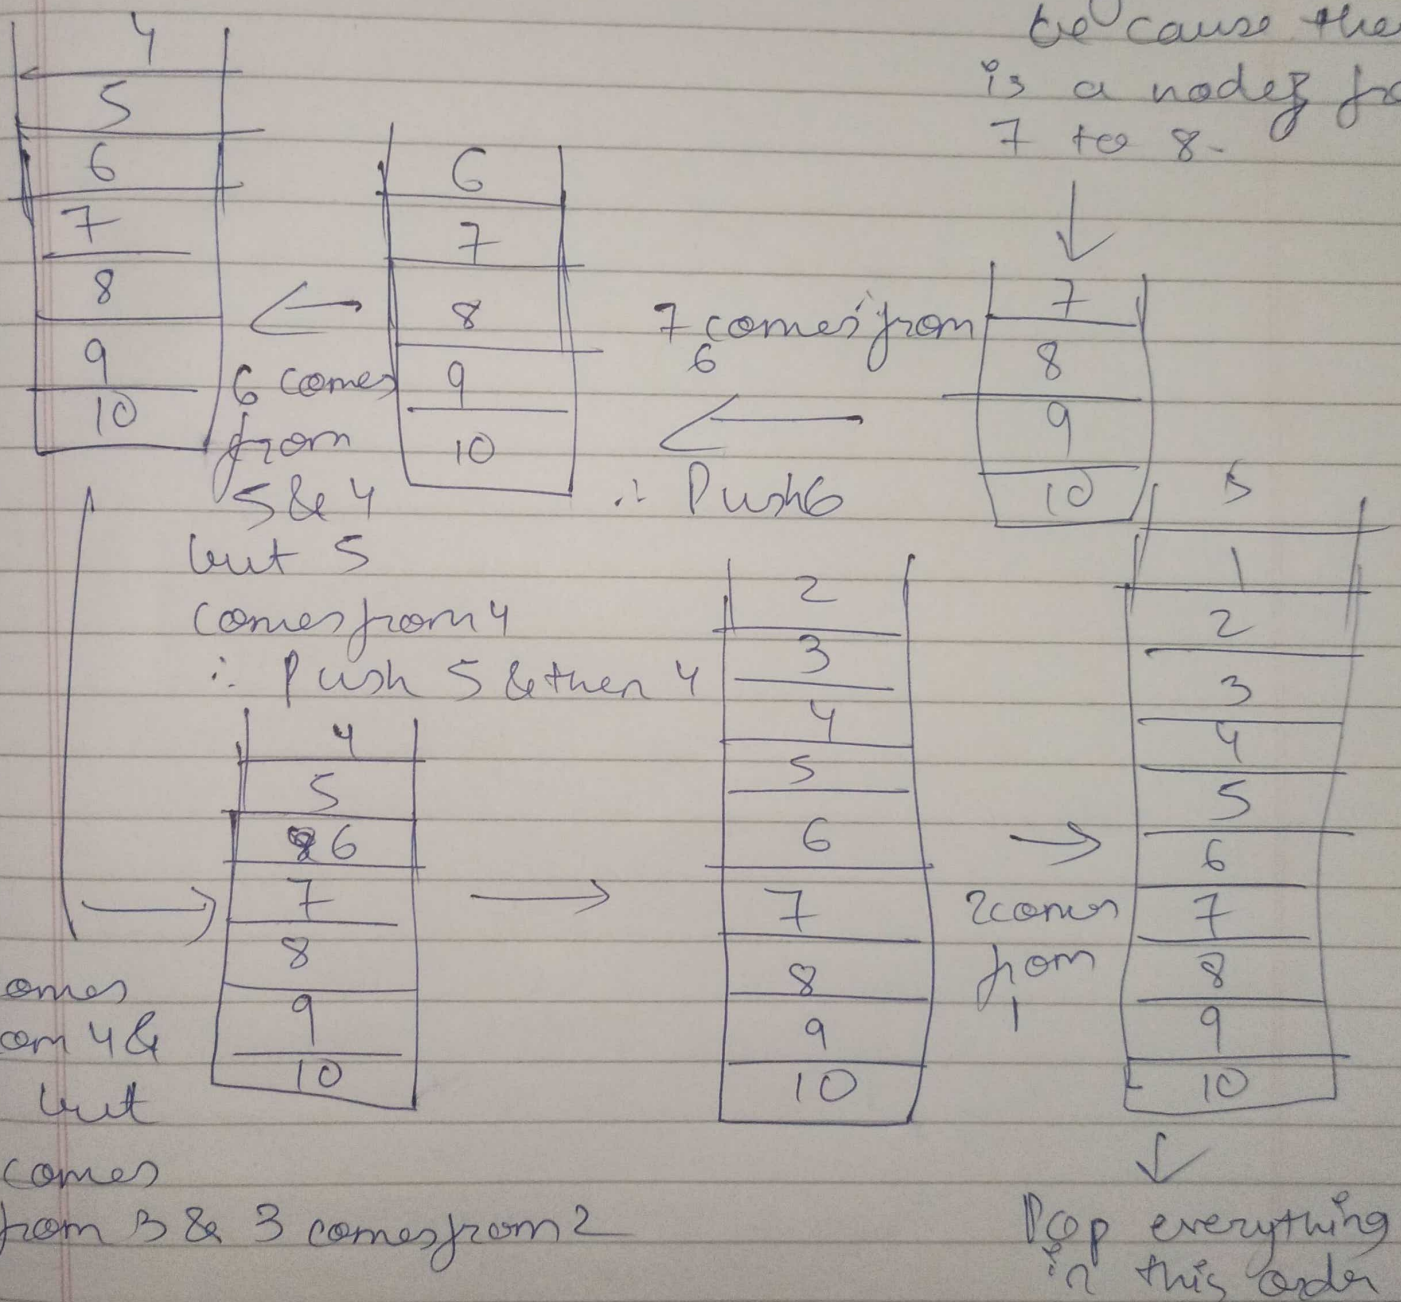 because the
is a node
7 to 8.
4
5
6
7
8
9
10
6
7
8
9
10
7
8
9
10
7 comes from
6
∴ Push 6
6 comes
from
5 & 4
but 5
comes from 4
∴ Push 5 & then 4
4
5
6
7
8
9
10
2
3
4
5
6
7
8
9
10
2 comes
from
1
1
2
3
4
5
6
7
8
9
10
omes
om 4 &
but
comes
from 3 & 3 comes from 2
Pop everything
in this order